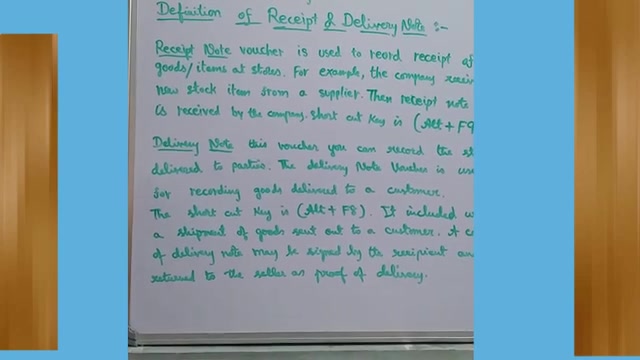 Definition of Receipt & Delivery Note :-
Receipt Note voucher is used to reord receipt of
goods/items at stores. For example, the company recei
new stock item from a supplier. Then receipt note
is received by the company. Short cut key is (Alt + F9
Delivery Note this voucher you can record the st
delivered to parties. The delivery Note Voucher is use
for recording goods delivered to a customer.
The short cut key is (Alt + F8). It included w
a shipment of goods sent out to a customer. A c
of delivery note may be signed by the recipient an
returned to the seller as proof of delivery.